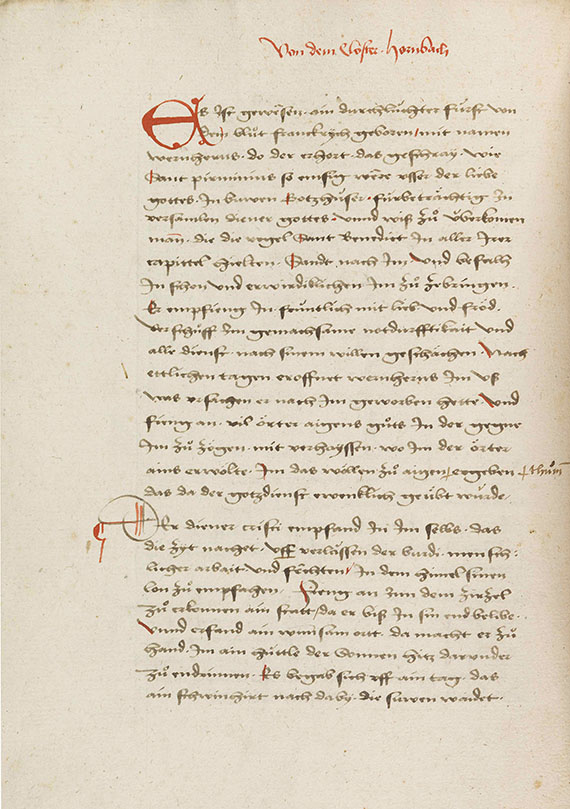 Von dem Closter · Hornbach
Es ist gewesen · ain durchluchter fürst von
dem blůt franckrych geboren / mit namen
wernherus · do der erhort · das geschray · wie
Sant pirminius so emsig were usser der liebe
gottes · In buwen Gotzhüser · fürbeträchtig In
versamlen diener gottes · unnd wiß zů überkomen
man̄ · die die regel Sant Benedict In aller Irer
capittel hielten · Sandt nach Im · und befalh
In schon und erwirdiklichen Im zů zebringen ·
Er empfieng In früntlich mit lieb und fröd ·
verschůff Im gemachsame notdurfftikait und
alle dienst · nach sinem willen geschächen · Nach
ettlichen tagen eroffnet wernherus Im uß
was ursachen er nach Im geworben hette · und
fieng an · vil örter aigens gůts In der gegne
Im zů zögen · mit verhayssen · wo Im der örter
ains erwölte · Im das wöllen zů aigen ergeben + thům̄
das da der gotzdienst ewenklich geübt wurde ·
Der diener cristi empfand In Im selbs · das
die zyt nachet · uff verlussen der burdi · mensch:
licher arbait und fechten / In dem himel sinen
lon zů empfahen · Fieng an Inn dem zirzel
zů erkonnen ain statt / da er biß In sin end belibe ·
unnd erfand ain wunsam ortt · da macht er zů
hand · Im ain hüttle der Sonnen hitz darunder
zů endrinnen · Es begab sich uff ain tag · das
ain schwinhirt nach daby · die suwen waidet ·